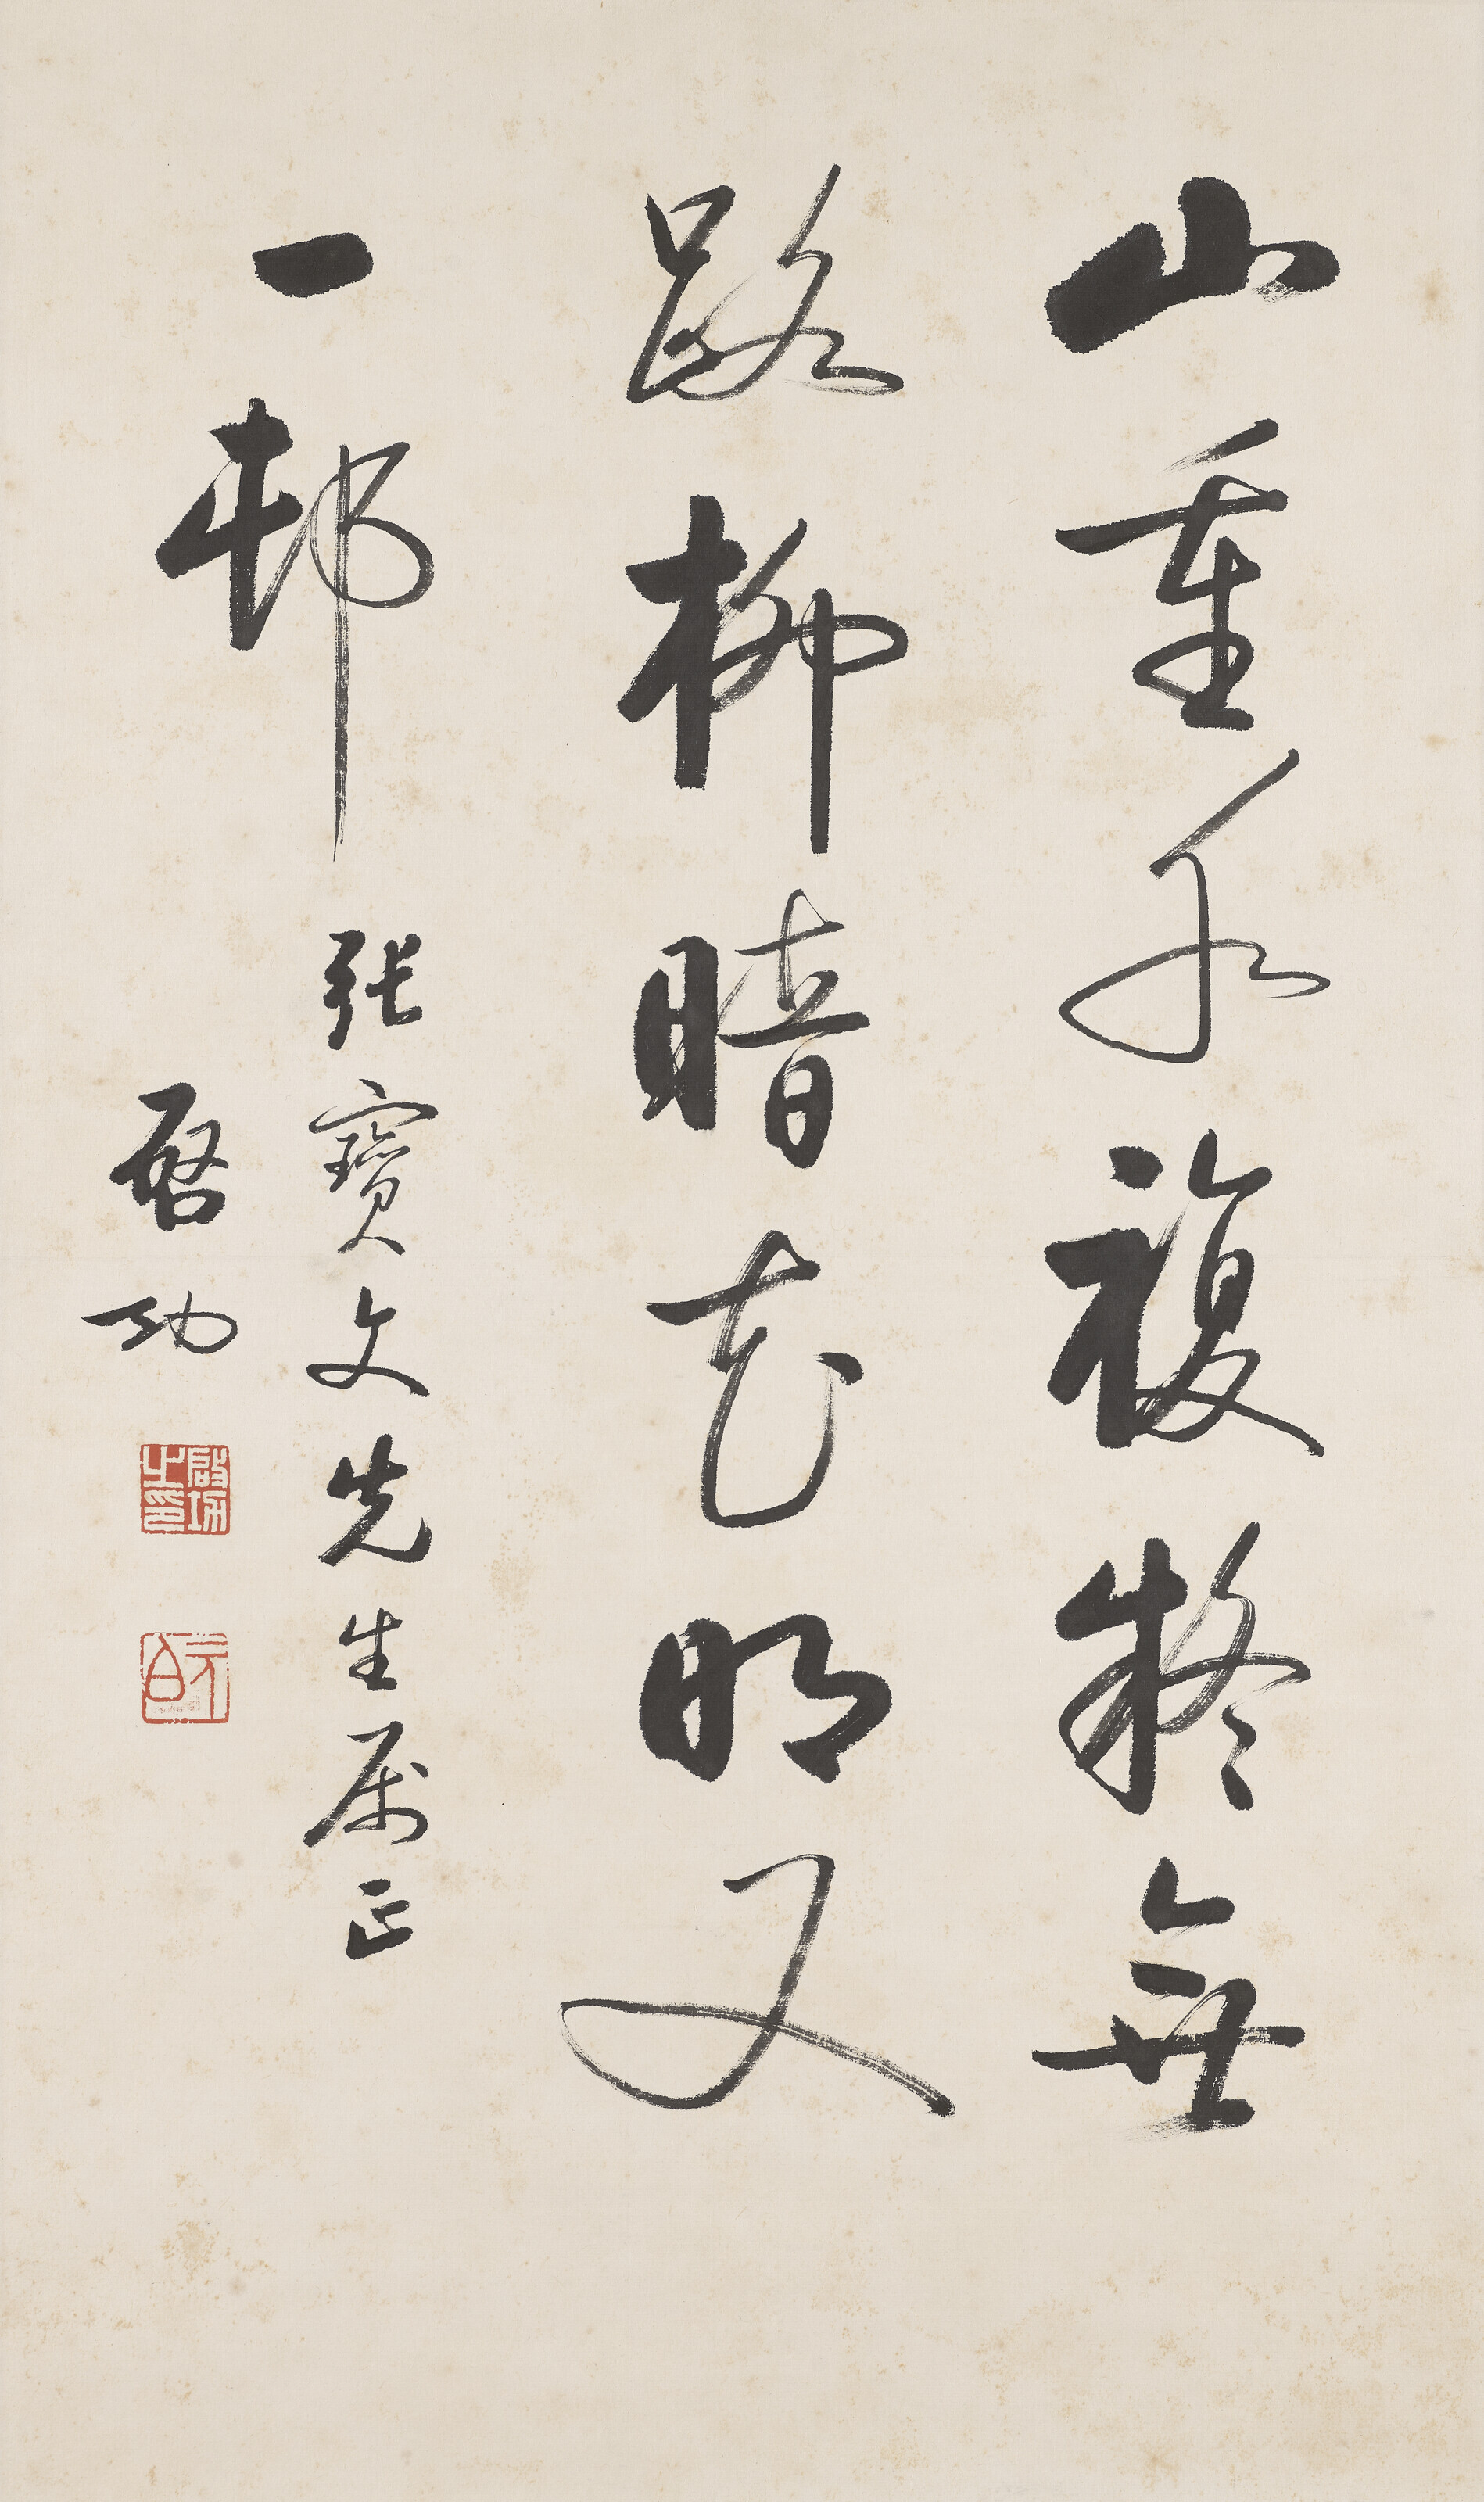 山重水複疑無
路柳暗花明又
一邨
張寶文先生属正
啓功
啟功之印
元白